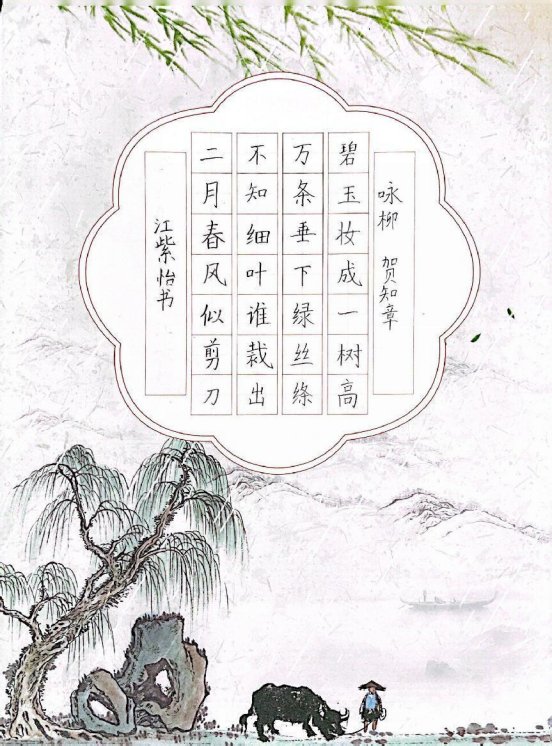 咏柳 贺知章
碧玉妆成一树高
万条垂下绿丝绦
不知细叶谁裁出
二月春风似剪刀
江紫怡书